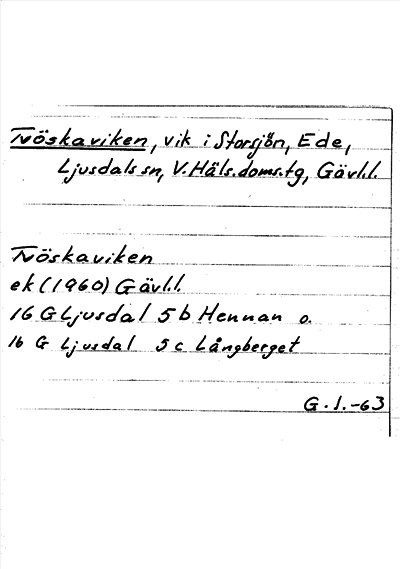 Tvöskaviken, vik i Storsjön, Ede,
Ljusdals sn, V.Häls.doms.tg, Gävl.l.
Tvöskaviken
ek (1960) Gävl.l.
16 G Ljusdal 5 b Hennan o.
16 G Ljusdal 5 c Långberget
G.J.-63